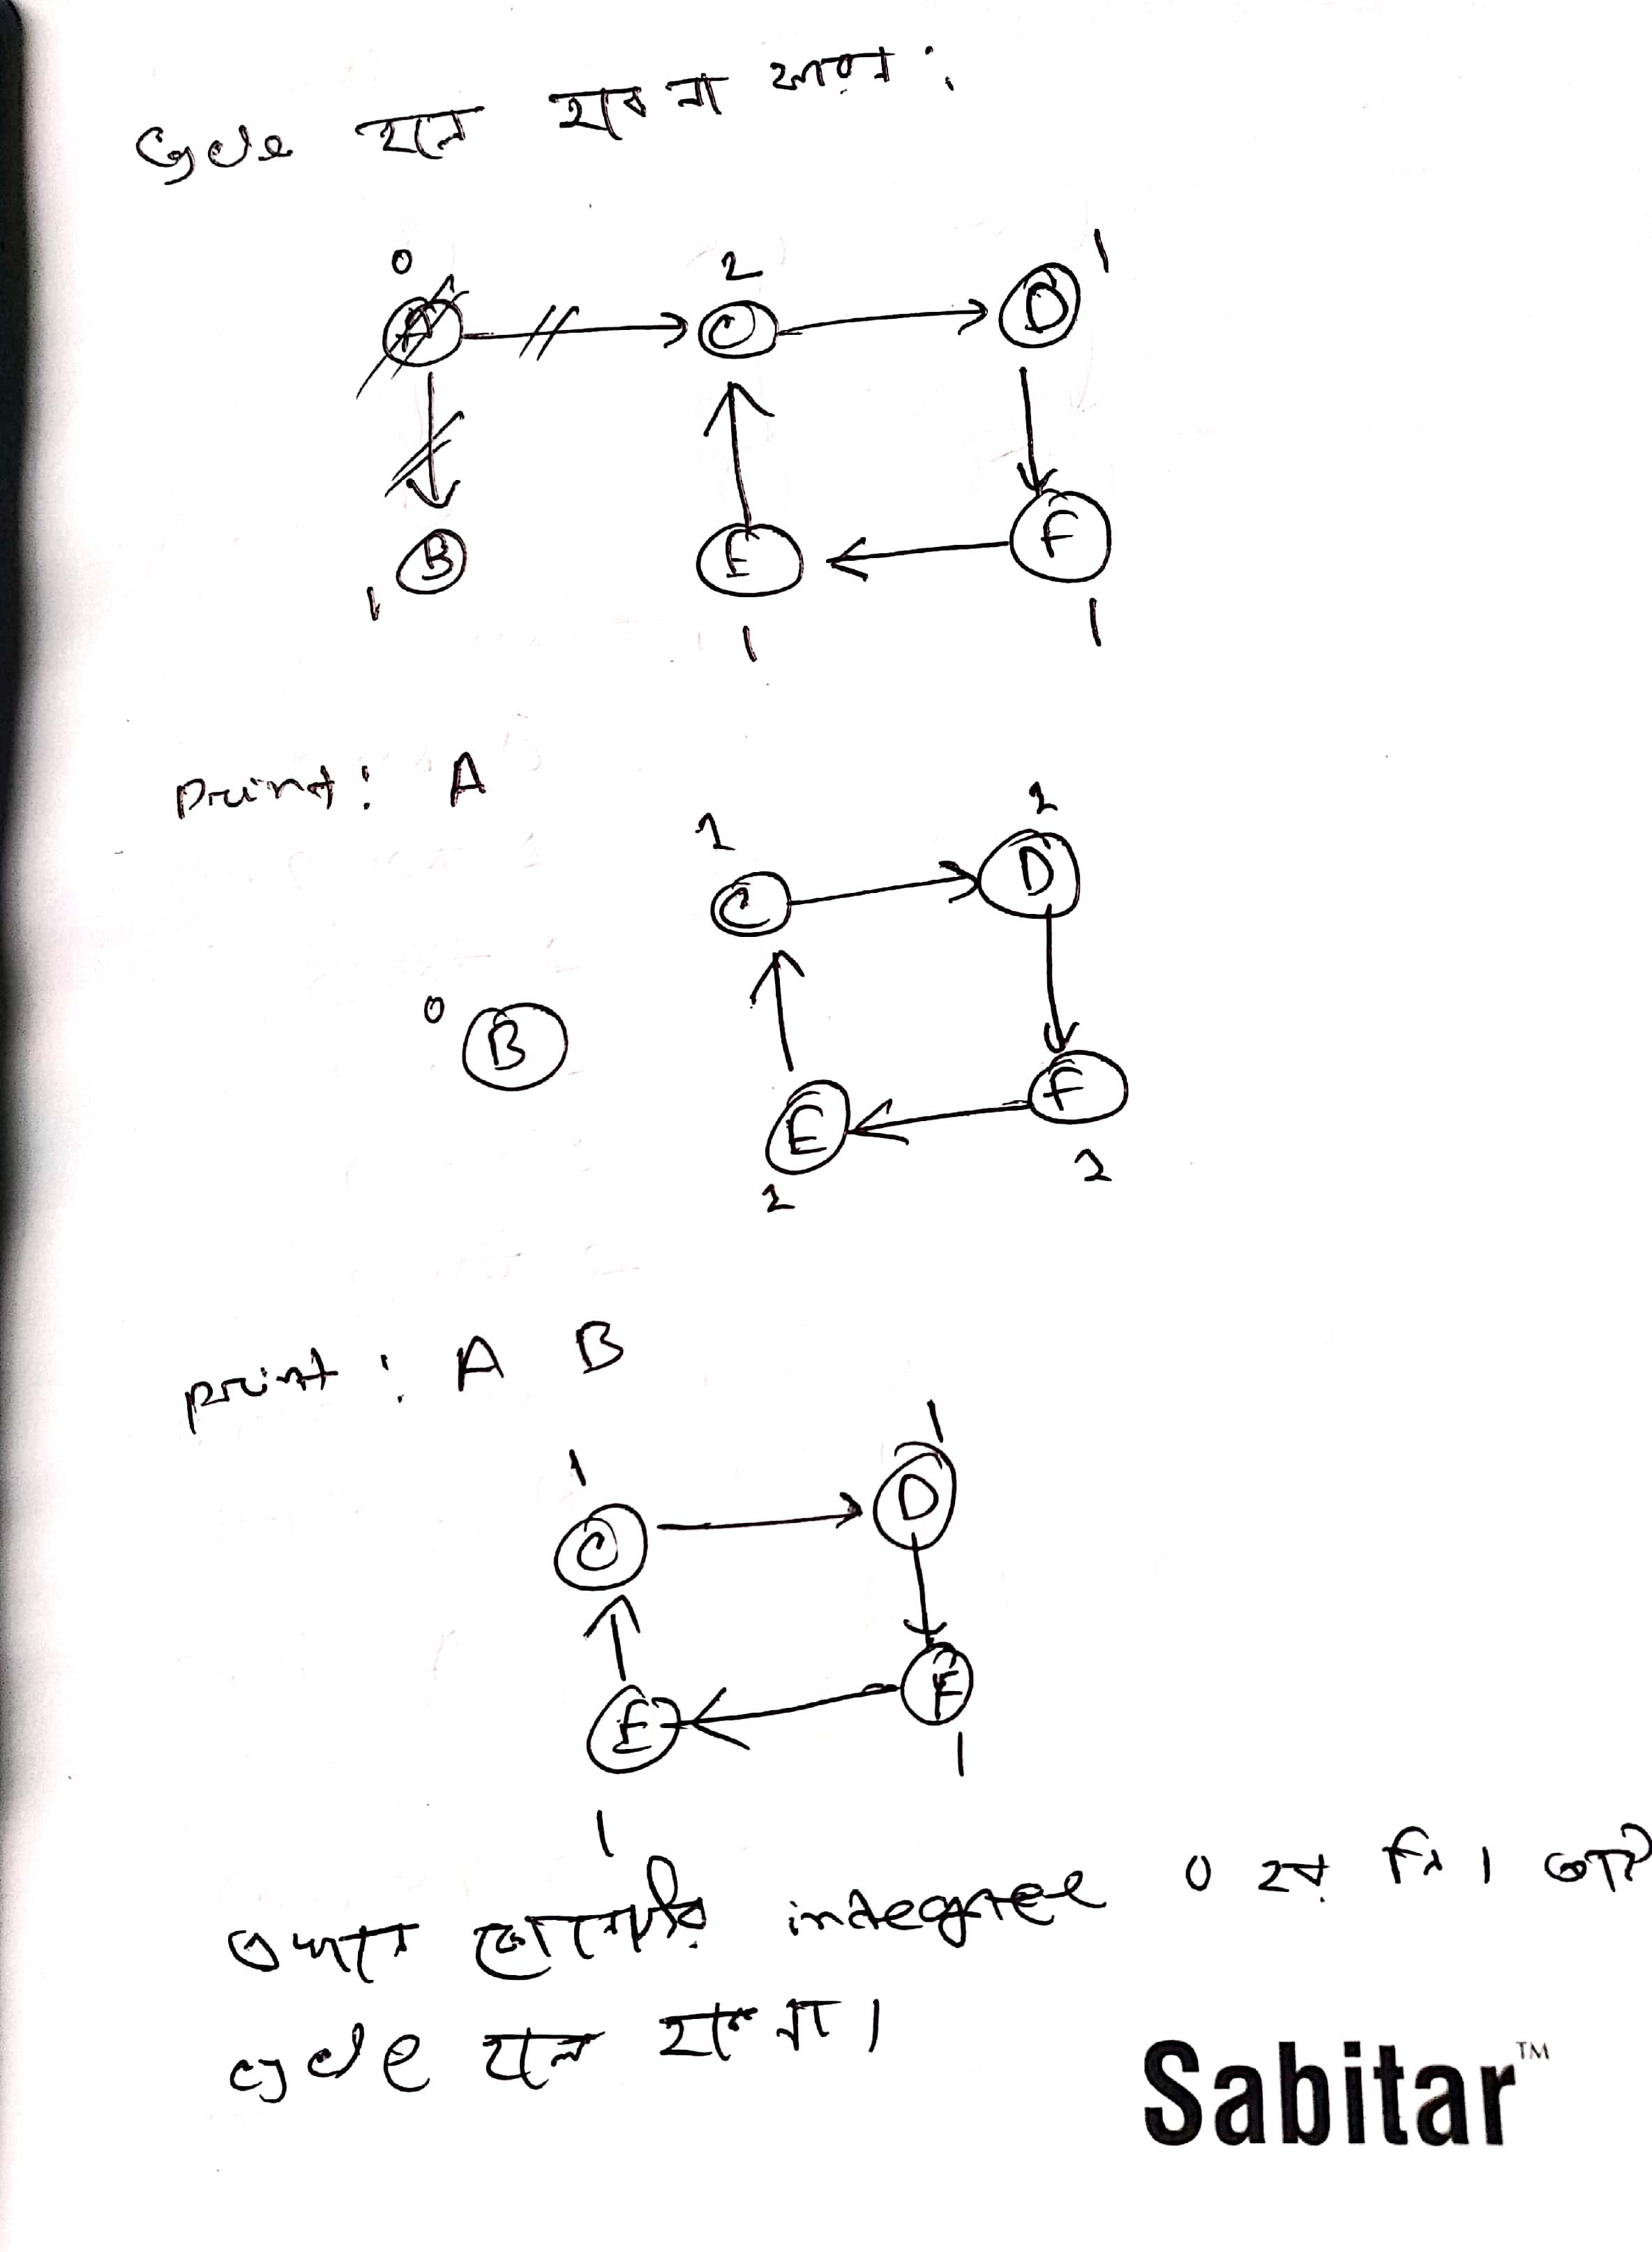 Cycle হলে হবে না কারণ :
0 2 1
A C D
B E F
1 1 1
Print : A
1 2
C D
0 B
E F
2 2
print : A B
1 1
C D
E F
1 1
এখানে কোনোটার indegree 0 হয় নি। তাই
cycle হলে হবে না।
Sabitar™